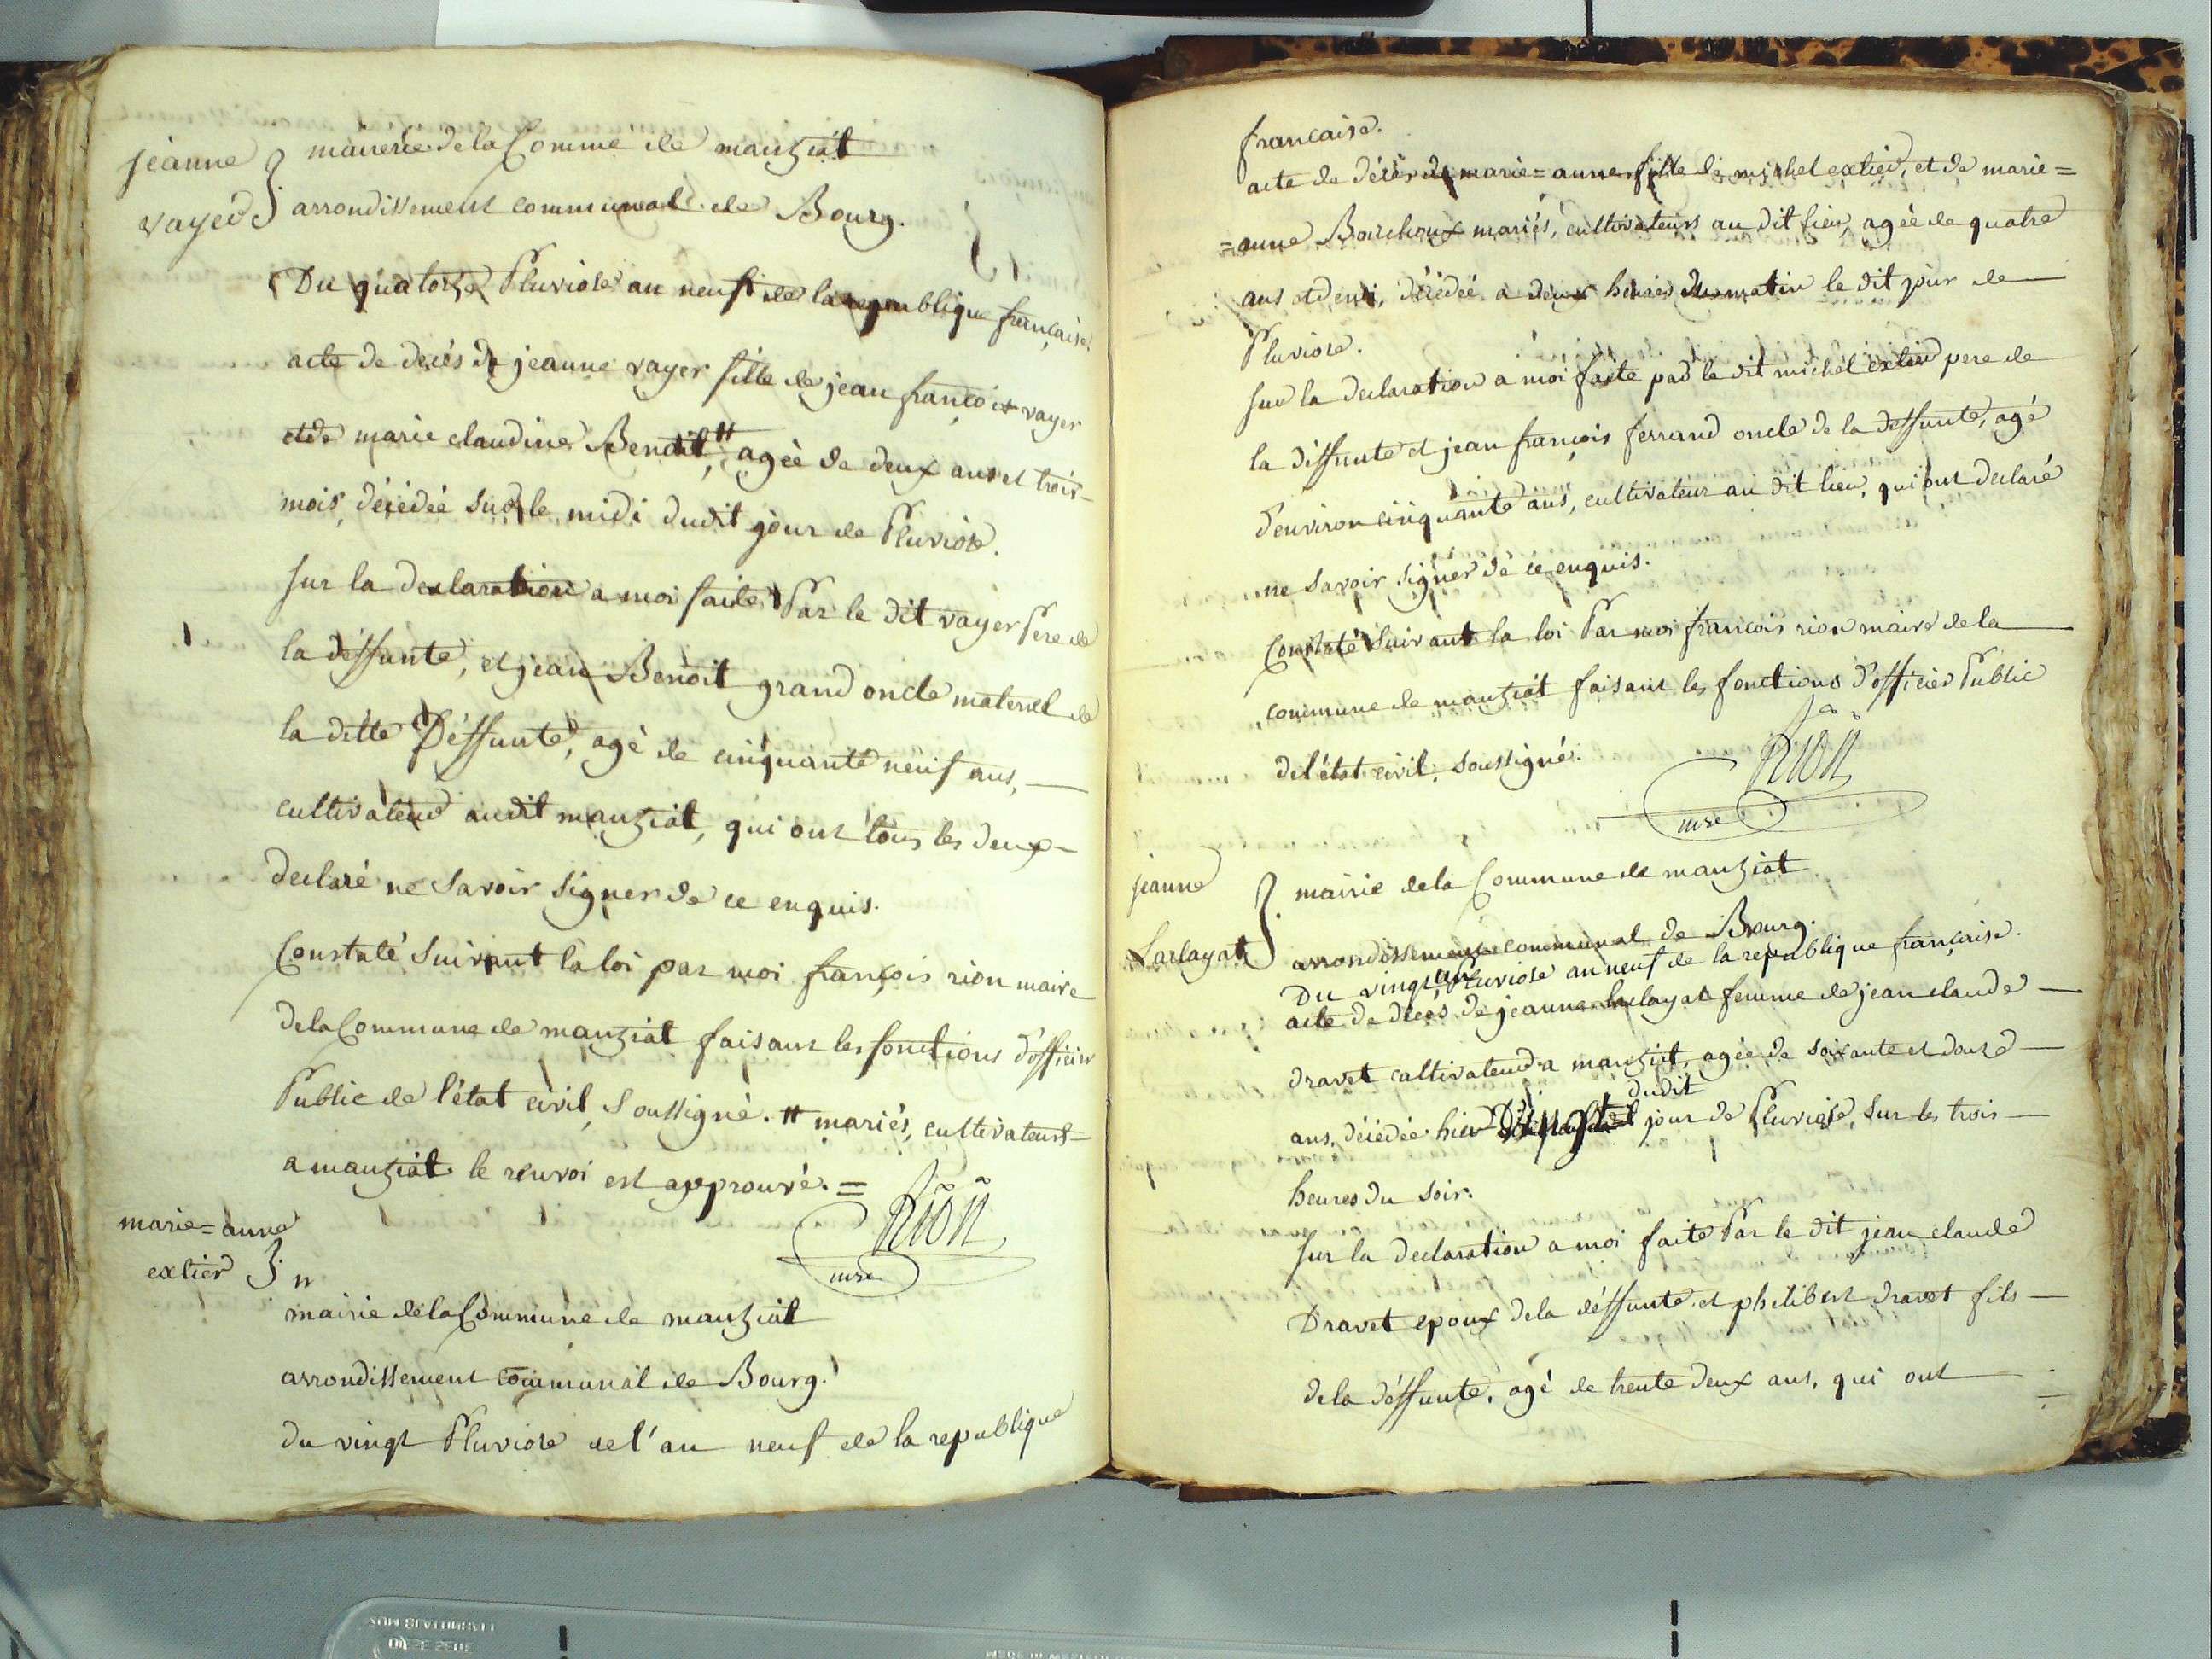 jeanne
vayer
mairerie de la Comme de manziat
arrondissement communal de Bourg.
Du quatorze Pluviose an neuf de la republique française.
acte de decés de jeanne vayer fille de jean françois vayer
et de marie claudine Benoit, # agée de deux ans et trois
mois, décédée sur le midi dudit jour de Pluviose.
sur la declaration a moi faite Par le dit vayer Pere de
la déffunte, et jean Benoit grand oncle maternel de
la ditte Déffunte, agé de cinquante neuf ans,
cultivateur audit manziat, qui ont tous les deux
declaré ne savoir signer de ce enquis.
Constaté suivant la loi par moi françois rion maire
de la Commune de manziat faisant les fonctions d'officier
Public de l'état civil, soussigné. # mariés, cultivateurs
a manziat le renvoi est approuvé. =
Rion
mre
marie=anne
extier
mairie de la Commune de manziat
arrondissement communal de Bourg.
du vingt Pluviose de l'an neuf de la republique
francaise.
acte de décès de marie=anne fille de michel extier, et de marie=
=anne Boirchoux mariés, cultivateurs au dit lieu, agée de quatre
ans et demi, décédée a deux heures du matin le dit jour de
Pluviose.
sur la declaration a moi faite par le dit michel extier pere de
la déffunte et jean françois ferrand oncle de la deffunte, agé
d'environ cinquante ans, cultivateur au dit lieu, qui ont declaré
ne savoir signer de ce enquis.
Constaté suivant la loi Par moi françois rion maire de la
commune de manziat faisant les fonctions d'officier Public
de l'état civil, soussigné.
Rion
mre
jeanne
Larlayat
mairie de la Commune de manziat
arrondissement communal de Bourg.
Du vingt un Pluviose an neuf de la republique française.
acte de decés de jeanne larlayat femme de jean claude
dravet cultivateur a manziat, agée de soixante et douze
dudit
ans, décédée hier vingt jour de Pluviose, sur les trois
heures du soir.
sur la declaration a moi faite Par le dit jean claude
Dravet epoux de la déffunte et philibert dravet fils
de la déffunte, agé de trente deux ans, qui ont